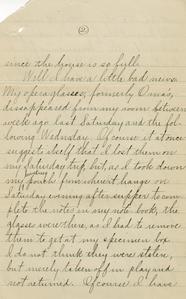 (2)
since the house is so full.
Well I have a little bad news.
My opera glasses, formerly Oma's,
dissapeared from my room between
week ago last Saturday and the fol-
lowing Wednsday. Of course it at once
suggests itself that I lost them on
my Saturday trip, but, as I took down
my pouch from where it hangs on
Saturday evening after supper to com-
plete the notes in my note book, the
glasses were there, as I had to remove
them to get at my specimen box
I do not think they were stolen,
but merely taken off in play and
not returned. Of course I have